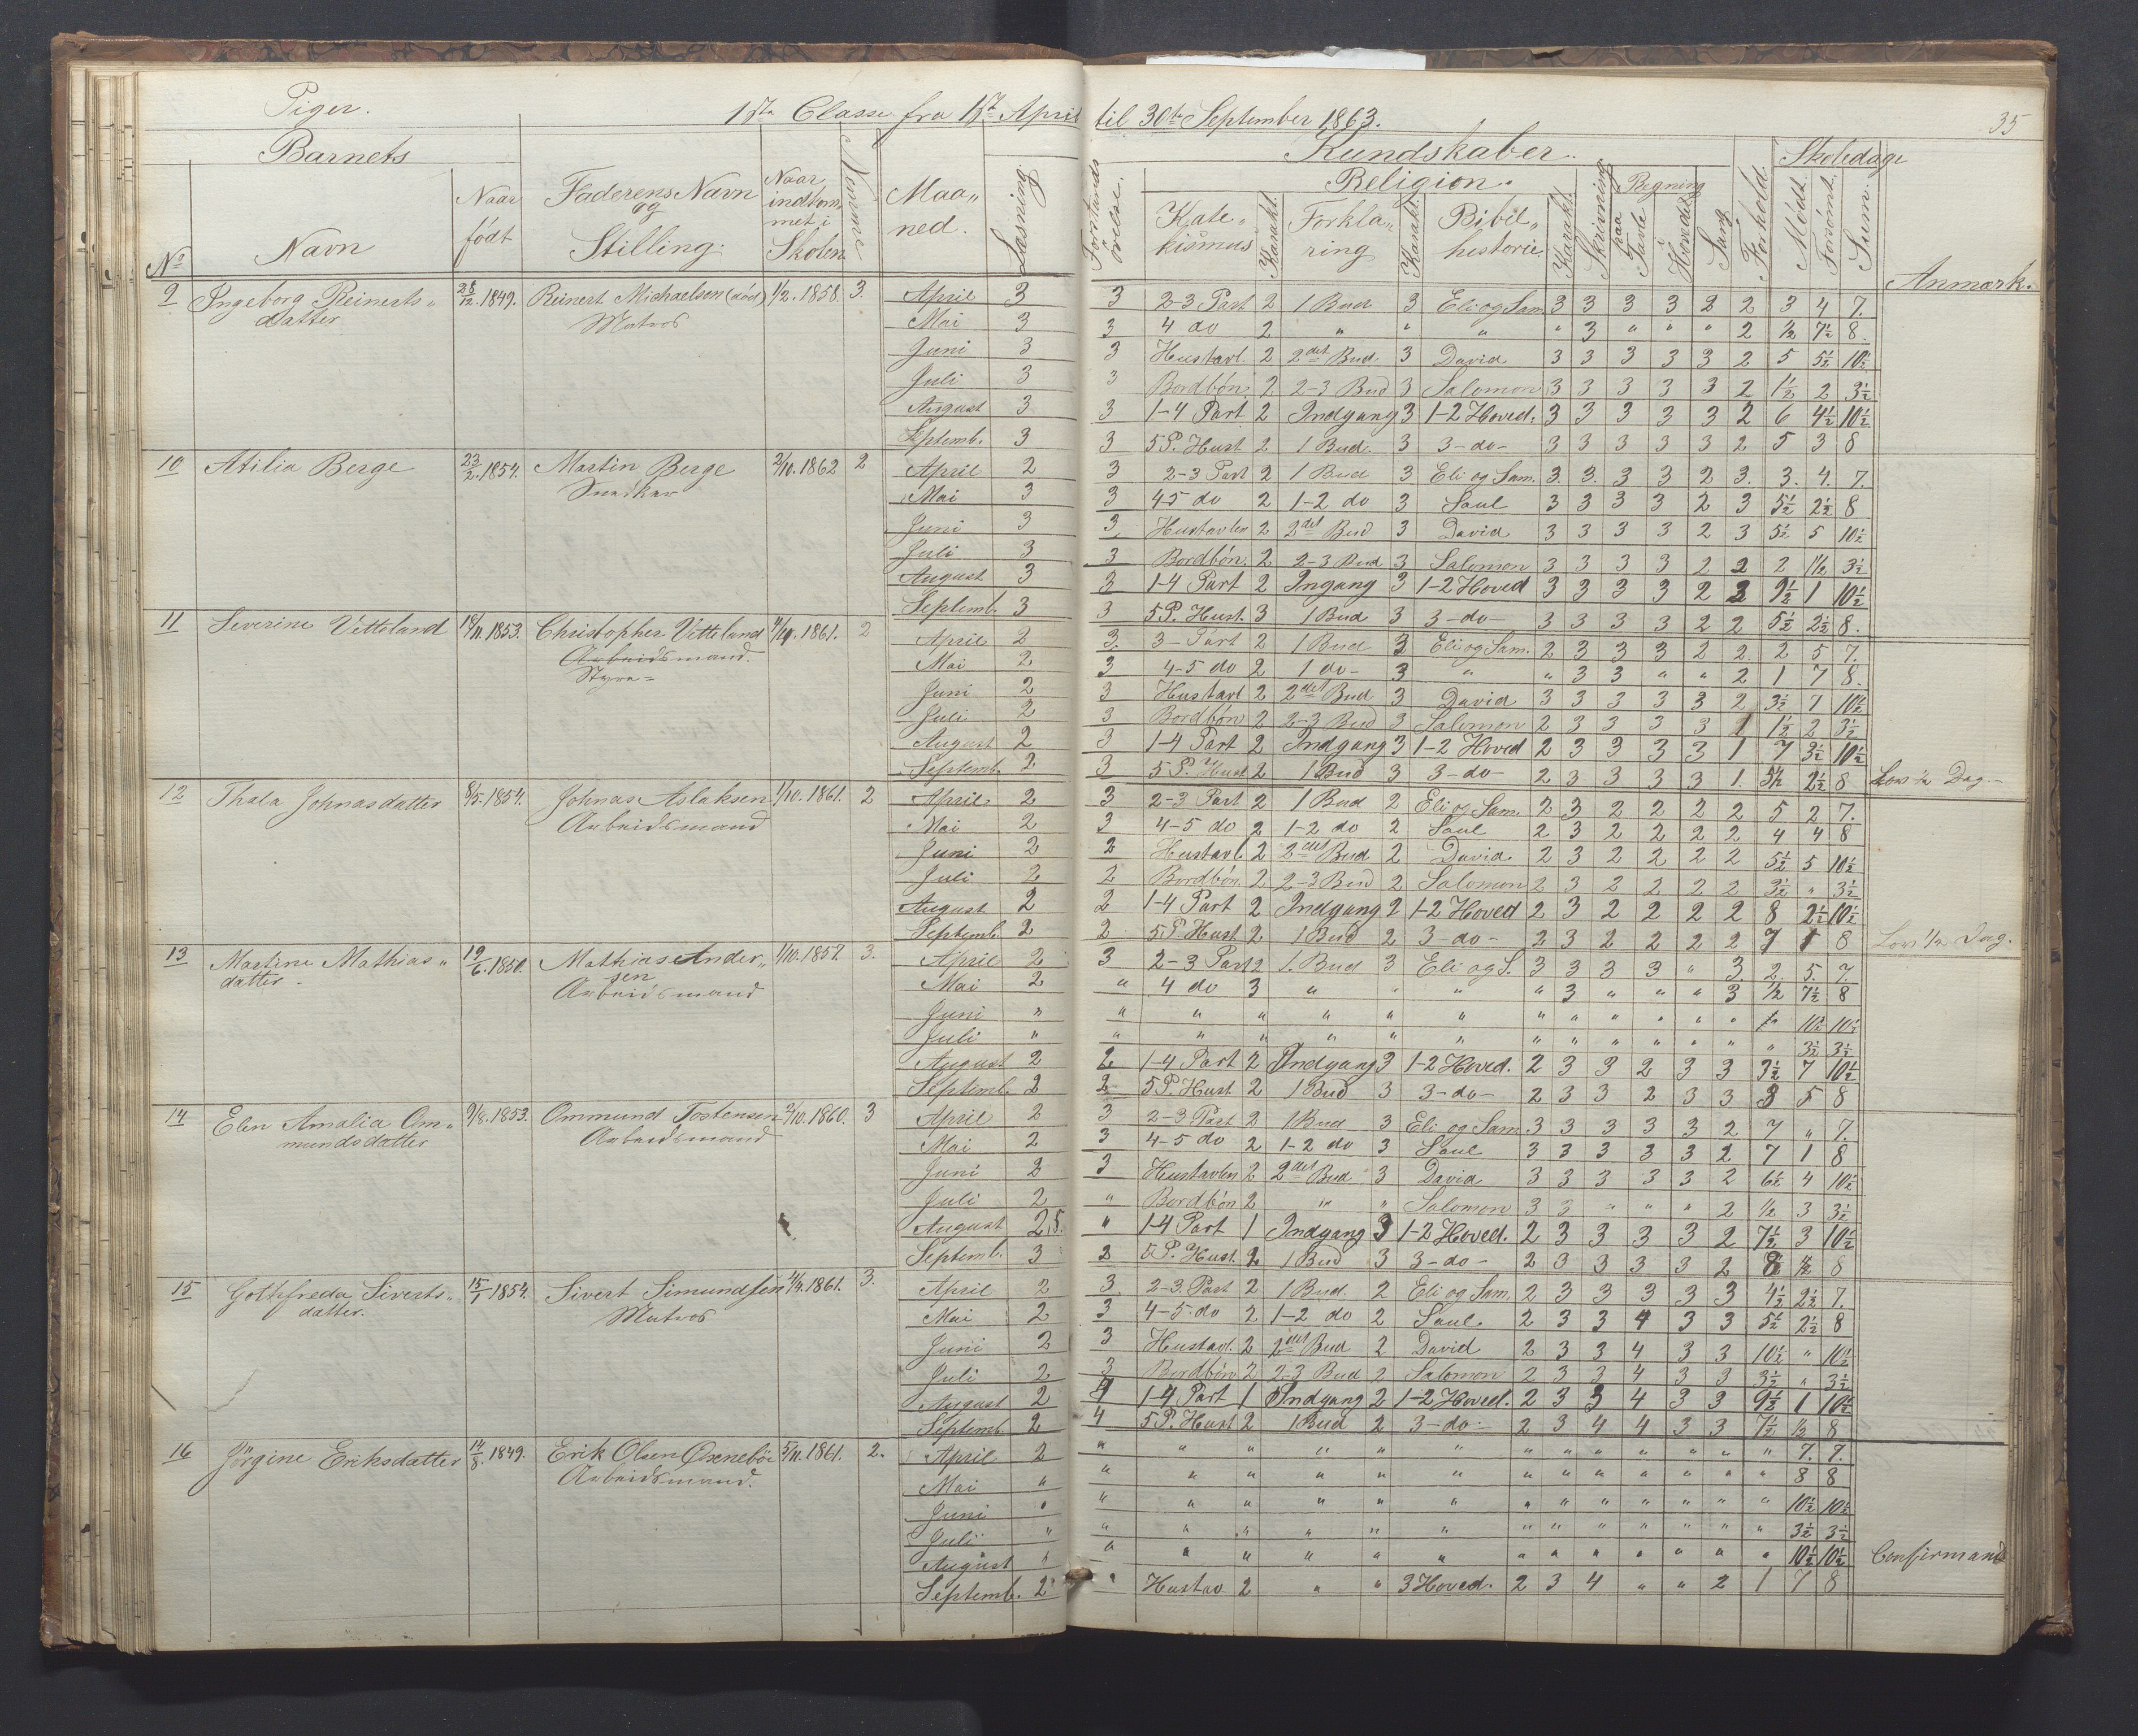 Piger.
1ste Classe fra 1ste April til 30te September 1863.
35
Barnets
Kundskaber.
Skoledage
No
Navn
Naar født
Faderens Navn og Stilling.
Naar indkommet i Skolen
Nummer
Maaned.
Læsning
Forstandsövelse.
Religion.
Katekismus
Karakt.
Forklaring
Karakt.
Bibelhistorie
Karakt.
Skrivning
Regning
paa Tavle
i Hovedet
Sang
Forhold
Mødt.
Forsømt.
Sum.
Anmærk.
9 Ingeborg Reinerts„ 28/12.1849. Reinert Michaelsen (död) 1/2.1858. 3. April 3 3 2-3 Part 2 1 Bud 3 Eli og Sam 3 3 3 3 2 2 3 4 7.
datter Matros Mai 3 3 4 do 2 „ „ „ „ 3 „ „ „ 2 1/2 7 1/2 8.
Juni 3 3 Hustavl 2 2det Bud 3 David 3 3 3 3 3 2 5 5 1/2 10 1/2
Juli 3 3 Bordbön 2 2-3 Bud 3 Salomon 3 3 3 3 3 2 1 1/2 2 3 1/2
August 3 3 1-4 Part 2 Indgang 3 1-2 Hoved. 3 3 3 3 3 2 6 4 1/2 10 1/2
Septemb. 3 3 5 P. Hust 2 1 Bud. 3 3-do- 3 3 3 3 3 2 5 3 8
10 Atilia Berge 23/2.1854. Martin Berge 2/10.1862 2 April 2 3 2-3 Part 2 1 Bud 3 Eli og Sam. 3. 3. 3 3 2 3. 3. 4. 7.
Snedker Mai 3 3 4-5 do 2 1-2 do 3 Saul 3 3 3 3 2 3 5 1/2 2 1/2 8
Juni 3 3 Hustavlen 2 2det Bud 3 David 3 3 3 3 2 3 5 1/2 5 10 1/2
Juli 3 3 Bordbön. 2 2-3 Bud 3 Salomon 3 3 3 3 2 2 2 1 1/2 3 1/2
August 3 3 1-4 Part 2 Ingang 3 1-2 Hoved 3 3 3 3 2 2 9 1/2 1 10 1/2
Septemb. 3 3 5 P. Hust. 3 1 Bud 3 3-do- 3 3 3 3 2 2 5 1/2 2 1/2 8.
11 Severine Vetteland 18/11.1853. Christopher Vetteland 1861. 2 April 2 3. 3-Part 2 1 Bud 3 Eli og Sam. 2 3 3 3 2 2. 2 5 7.
Arbeidsmand. Mai 2 3 4-5 do 2 1 do- 3 „ „ 3 3 „ „ 2 1 7 8.
Styrm= Juni 2 3 Hustavl 2 2det Bud 3 David 3 3 3 3 3 2 3 1/2 7 10 1/2
Juli 2 3 Bordbön 2 2-3 Bud 3 Salomon 2 3 3 3 3 1 1 1/2 2 3 1/2
August 2 3 1-4 Part 2 Indgang 3 1-2 Hoved 2 3 3 3 3 1 7 3 1/2 10 1/2
Septemb. 2 3 5 P. Hust 2 1 Bud 3 3-do- 2 3 3 3 3 1. 5 1/2 2 1/2 8 Lov 1/2 Dag.-
12 Thala Johnasdatter 8/5.1854. Johnas Aslaksen 1/10.1861. 2 April 2 3 2-3 Part 2 1 Bud 2 Eli og Sam. 2 3 2 2 2 2 5 2 7.
Arbeidsmand Mai 2 3 4-5 do 2 1-2 do 2 Saul 2 3 2 2 2 2 4 4 8
Juni 2 2 Hustavl. 2 2det Bud 2 David. 2 3 2 2 2 2 5 1/2 5 10 1/2
Juli 2 2 Bordbön. 2 2-3 Bud 2 Salomon 2 3 2 2 2 2 3 1/2 „ 3 1/2
August 2 2 1-4 Part 2 Indgang 2 1-2 Hoved 2 3 2 2 2 2 8 2 1/2 10 1/2
Septemb. 2 2 5 P Hust 2 1 Bud 2 3-do- 2 3 2 2 2 2 7 1 8 Lov 1/2 Dag.
13 Martine Mathias„ 19/6.1850. Mathias Ander„ 1/10.1857. 3. April 2 3 2-3 Part 2 1. Bud 3 Eli og S. 3 3 3 3 „ 3 2 5. 7.
datter. sen Mai 2 „ 4 do 3 „ „ „ „ 3 „ „ „ 3 1/2 7 1/2 8
Arbeidsmand Juni „ „ „ „ „ „ „ „ „ „ „ „ „ 10 1/2 10 1/2
Juli „ „ „ „ „ „ „ „ „ „ „ „ „ „ 3 1/2 3 1/2
August 2 2 1-4 Part 2 Indgang 3 1-2 Hoved. 2 3 3 2 3 3 3 1/2 7 10 1/2
Septemb. 2 2 5 P. Hust 2 1 Bud 3 3-do- 2 3 3 2 3 3 3 5 8
14 Elen Amalia Om„ 9/8.1853. Ommund Tostensen 2/10.1860. 3 April 2 3 2-3 Part 2 1 Bud 3 Eli og Sam. 3 3 3 3 3 2 7 „ 7.
mundsdatter Arbeidsmand Mai 2 3 4-5 do 2 1-2 do 3 Saul 3 3 3 3 3 2 7 1 8
Juni 2 3 Hustavlen 2 2det Bud 3 David 3 3 3 3 3 2 6 1/2 4 10 1/2
Juli 2 „ Bordbön 2 „ „ Salomon 3 3 „ „ „ 2 1/2 3 3 1/2
August 2,5. „ 1-4 Part 1 Indgang 3 1-2 Hoved. 2 3 3 3 3 2 7 1/2 3 10 1/2
Septemb. 3 2 5 P. Hust. 2 1 Bud 3 3-do- 2 3 3 3 3 2 8 1/2 8
15 Gothfreda Siverts„ 15/1 1854. Sivert Simundsen 1861. 3. April 2 3. 2-3 Part 2 1 Bud. 2 Eli og Sam. 2 3 3 3 3 3 4 1/2 2 1/2 7.
datter. Matros Mai 2 3 4-5 do 2 1-2 do 2 Saul. 2 3 3 4 3 3 5 1/2 2 1/2 8
Juni 2 3 Hustavl. 2 2det Bud 2 David 2 3 3 4 3 3 10 1/2 „ 10 1/2
Juli 2 3 Bordbön 2 2-3 Bud 2 Salomon 2 3 3 4 3 3 3 1/2 „ 3 1/2
August 2 4 1-4 Part 1 Indgang 2 1-2 Hoved. 2 3 3 4 3 3 9 1/2 1 10 1/2
Septemb 2 4 5 P. Hust 2 1 Bud 2 3-do- 2 3 4 4 3 3 7 1/2 1/2 8
16 Jörgine Eriksdatter 14/8.1849. Erik Olsen Oxneböe 5/11.1861. 2. April 2 „ „ „ „ „ „ „ „ „ „ „ „ „ 7. 7.
Arbeidsmand. Mai „ „ „ „ „ „ „ „ „ „ „ „ „ „ 8 8
Juni „ „ „ „ „ „ „ „ „ „ „ „ „ „ 10 1/2 10 1/2
Juli „ „ „ „ „ „ „ „ „ „ „ „ „ „ 3 1/2 3 1/2
August „ „ „ „ „ „ „ „ „ „ „ „ „ „ 10 1/2 10 1/2 Confirmand
Septemb. 2 „ Hustav 2 „ „ 3 Hoved. 2 3 4 „ „ 2 1 7 8